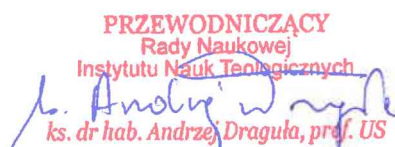 PRZEWODNICZĄCY
Rady Naukowej
Instytutu Nauk Teologicznych
ks. dr hab. Andrzej Draguła, prof. US